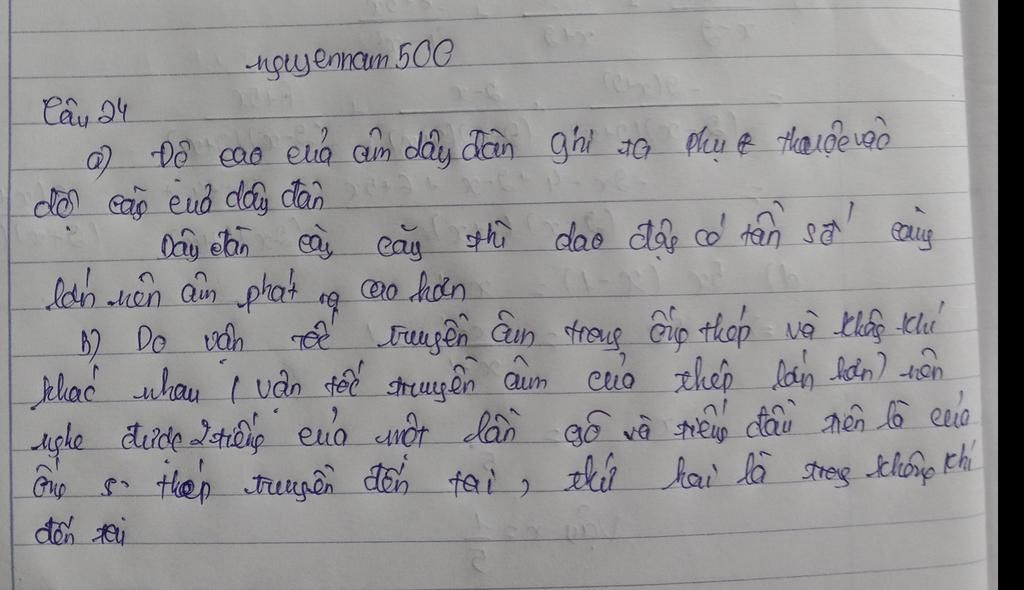 nguyennam500
Câu 24
a) Độ cao của âm dây đàn ghi ta phụ thuộc vào
độ căng của dây đàn
Dây đàn càng căng thì dao động có tần số càng
lớn nên âm phát ra cao hơn
b) Do vận tốc truyền âm trong ống thép và không khí
khác nhau (vận tốc truyền âm của thép lớn hơn) nên
nghe được 2 tiếng của một lần gõ và tiếng đầu tiên là của
ống thép truyền đến tai, thứ hai là trong không khí
đến tai